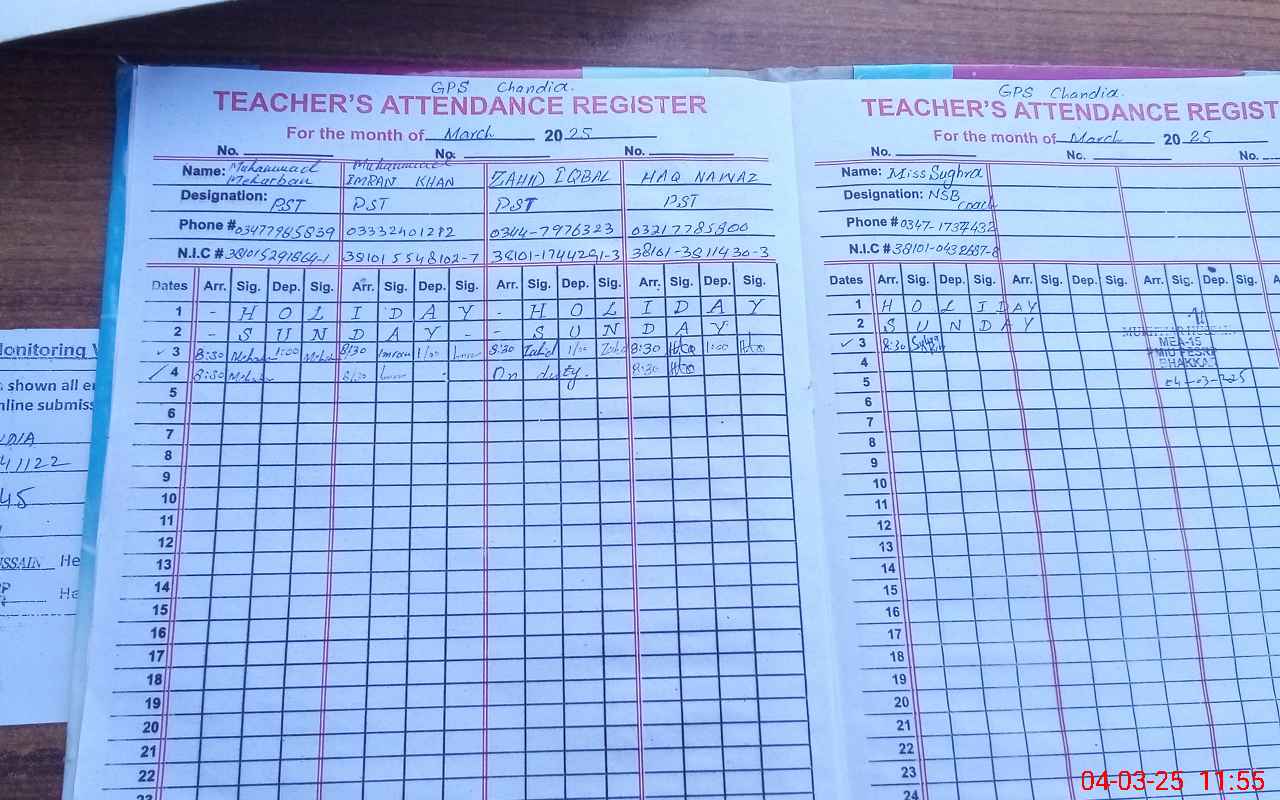 GPS Chandia.
TEACHER'S ATTENDANCE REGISTER
For the month of March 2025
No. No. No.
Name: Muhammad Meharban Muhammad IMRAN KHAN ZAHID IQBAL HAQ NAWAZ
Designation: PST PST PST PST
Phone # 03477985839 03332401212 0344-7976323 03217785800
N.I.C # 381015291864-1 381015548102-7 38101-1744291-3 38101-3811430-3
Dates Arr. Sig. Dep. Sig. Arr. Sig. Dep. Sig. Arr. Sig. Dep. Sig. Arr. Sig. Dep. Sig.
1 - H O L I D A Y - H O L I D A Y
2 - S U N D A Y - - S U N D A Y
3 8:30 1:00 8/30 Imran 1/00 8:30 Zahid 1/00 8:30 1:00
4 8:30 8/30 On duty. 8:30
5
6
7
8
9
10
11
12
13
14
15
16
17
18
19
20
21
22
23
GPS Chandia.
TEACHER'S ATTENDANCE REGIST
For the month of March 2025
No. No. No.
Name: Miss Sughra
Designation: NSB coach
Phone # 0347-1737432
N.I.C # 38101-0432687-8
Dates Arr. Sig. Dep. Sig. Arr. Sig. Dep. Sig. Arr. Sig. Dep. Sig.
1 H O L I D A Y
2 S U N D A Y
3 8:30
4
5
6
7
8
9
10
11
12
13
14
15
16
17
18
19
20
21
22
23
24
MEA-15
BHAKKAR
04-03-2025
onitoring
shown all
nline submiss
41122
45
SSAIN He
He
04-03-25 11:55